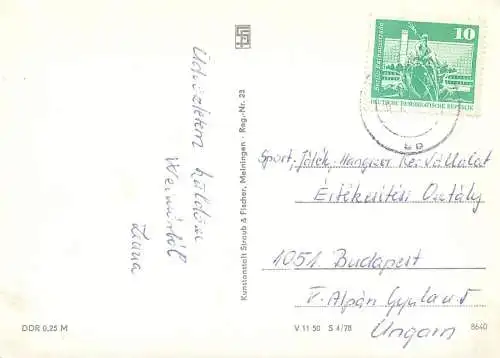 Üdvözletem küldöm
Weimarból
Kunstanstalt Straub & Fischer, Meiningen · Reg.-Nr. 23
10
DEUTSCHE DEMOKRATISCHE REPUBLIK
Sport, Játék, Hangszer Ker. Vállalat
Értékesítési Osztály
1051. Budapest
V. Alpári Gyula u. 5
Ungarn
DDR 0,25 M
V 11 50 S 4/78
8640